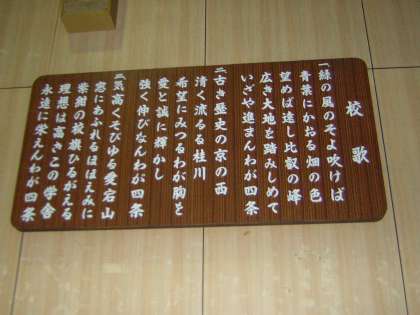 校歌
一緑の風のそよ吹けば
青葉にかおる畑の色
望めば遠し比叡の峰
広き大地を踏みしめて
いざや進まんわが四条
二古き歴史の京の西
清く流るる桂川
希望にみつるわが胸を
愛と誠に輝かし
強く伸びなんわが四条
三気高くそびゆる愛宕山
窓にあふれるほほえみに
葉鶏の校旗ひるがえる
理想は高きこの学舎
永遠に栄えんわが四条